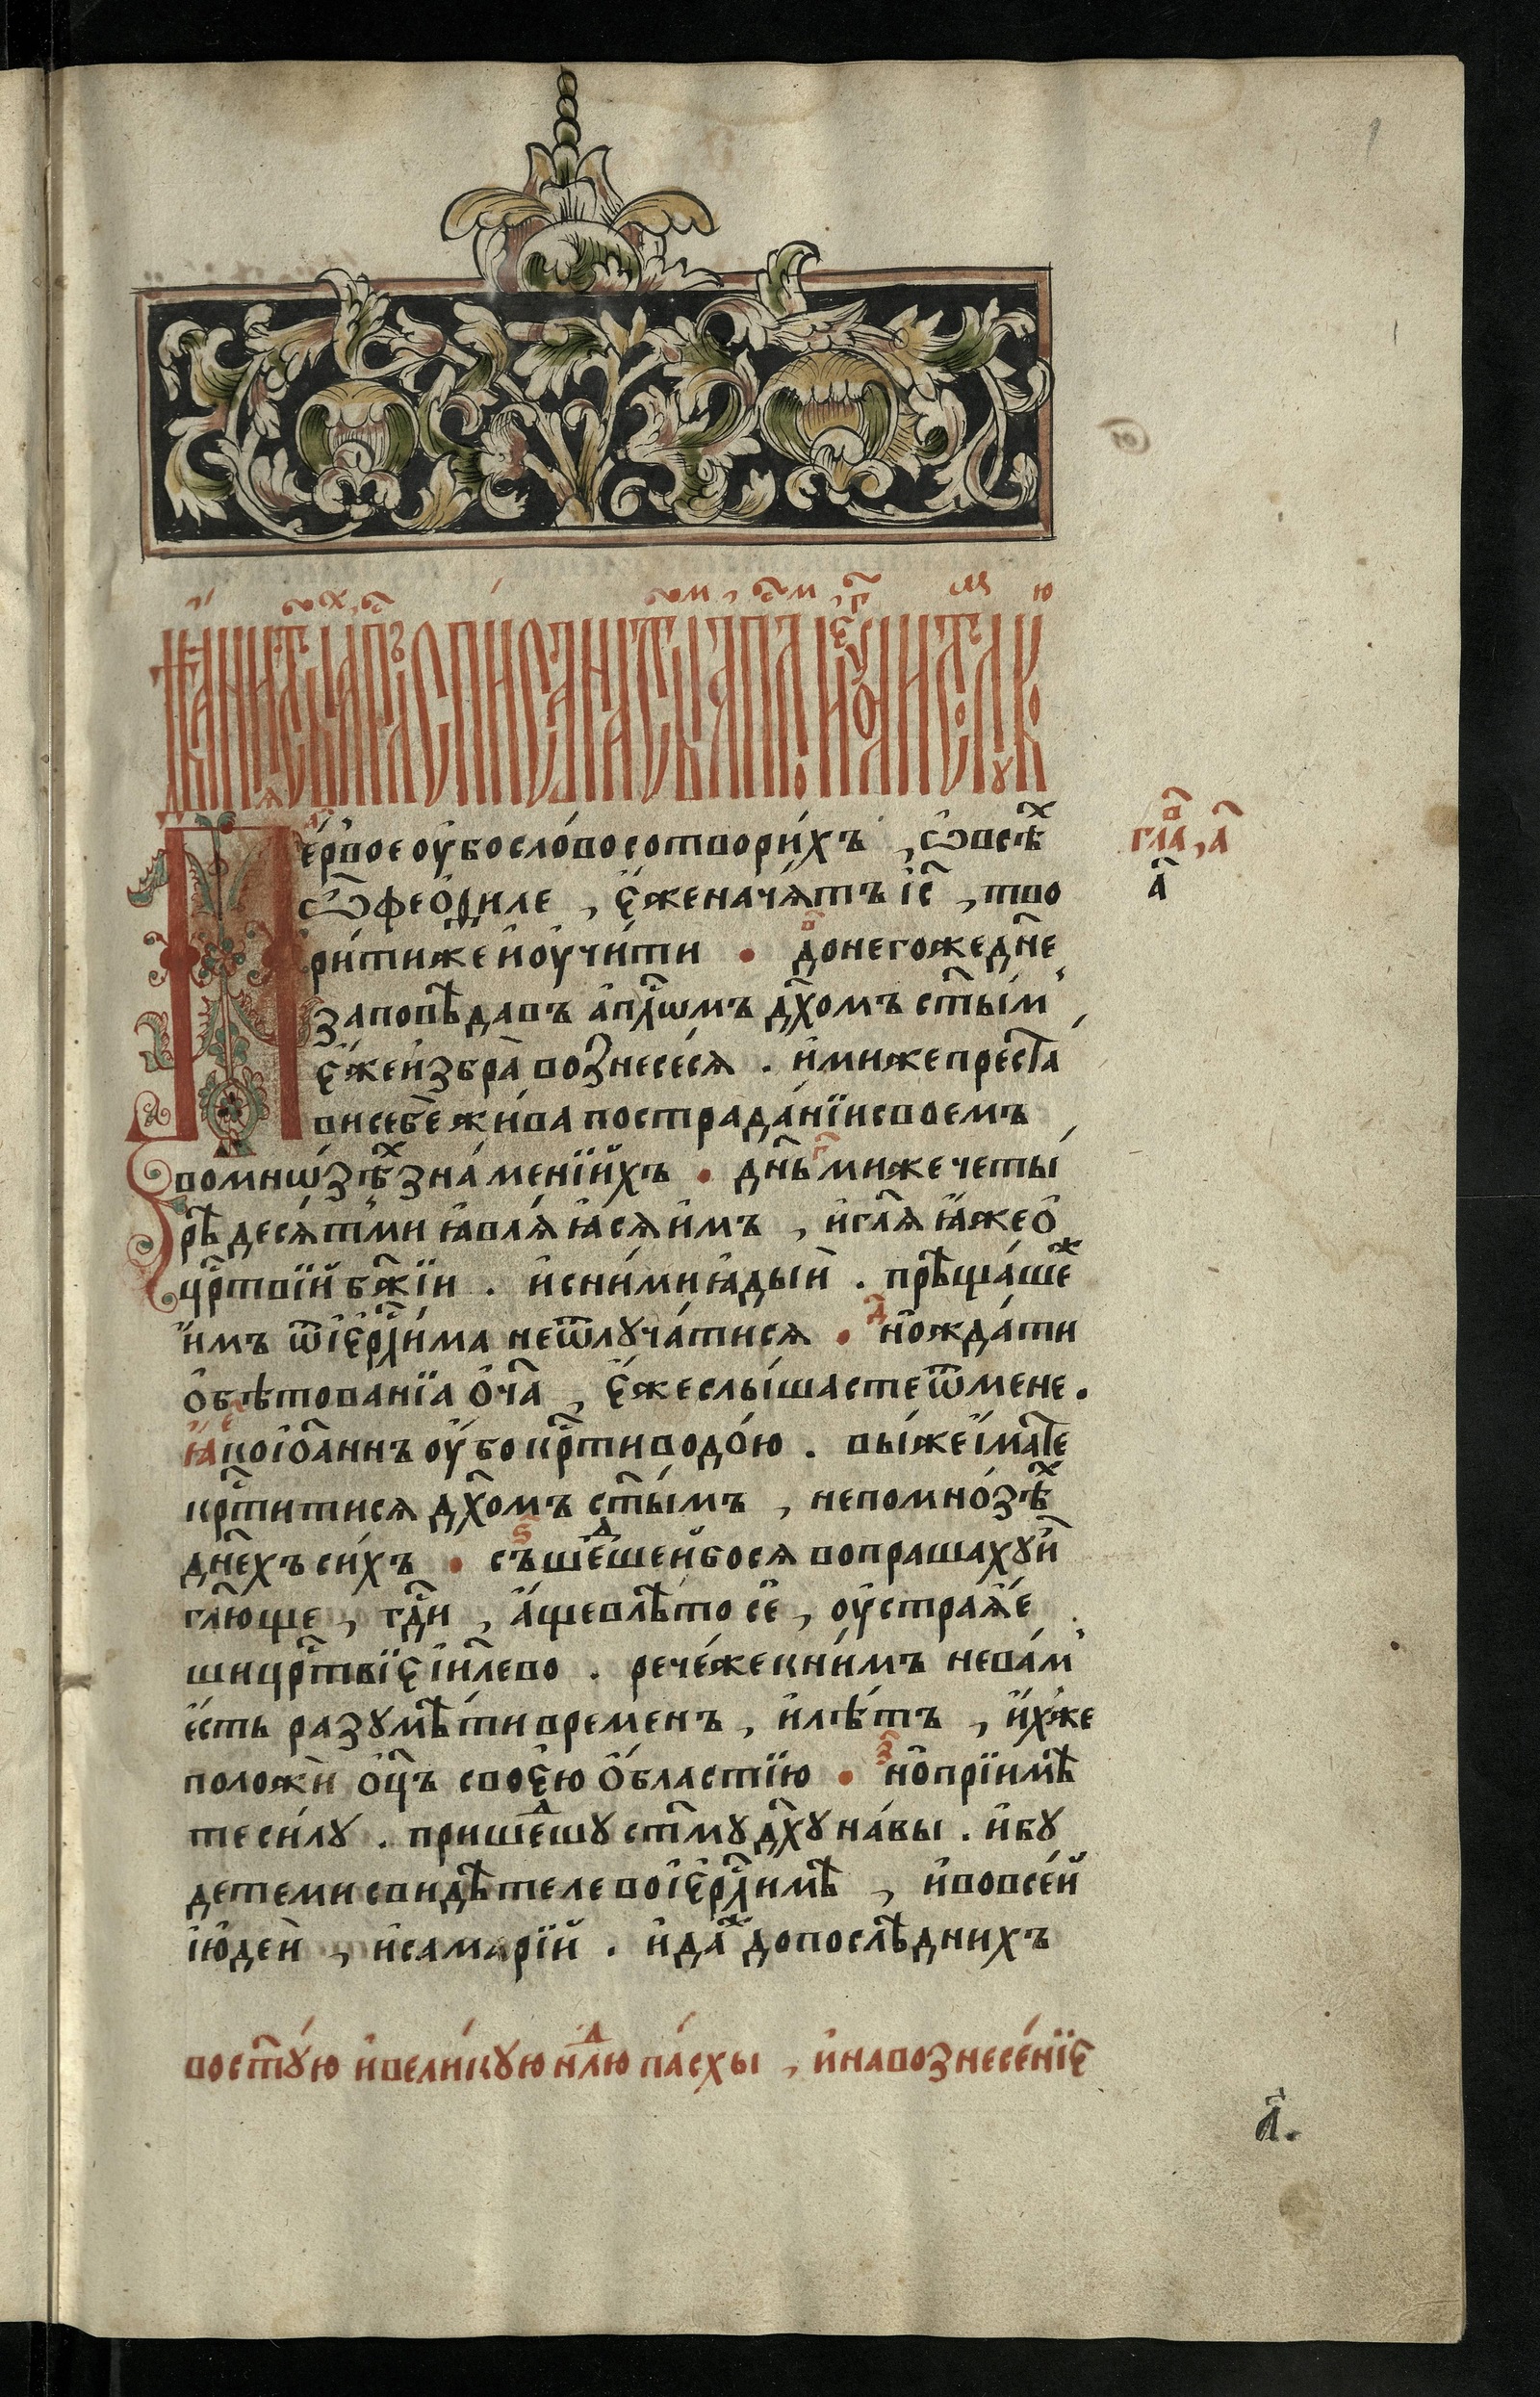 Дѣѧнїѧ ст҃ыхъ а҃пⷭ҇лъ списана ст҃ымъ а҃пⷭ҇ломъ и҆ є҆ѵⷢ҇листомъ лꙋко́ю
глава̀, а҃
а҃
Пе́рвое оу҆́бо сло́во сотвори́хъ , ѡ҆ всѣ́ⷯ
ѽ ѳео́филе , є҆́же начѧ́тъ і҆с҃ , тво
ри́ти же и҆ оу҆чи́ти . до него́же дн҃е
заповѣ́давъ а҆пⷭ҇лѡмъ дх҃омъ ст҃ы́м
є҆́же и҆збра̀ вознесе́сѧ . и҆́миже преста
ви себѐ жи́ва по страда́нїи своемъ
во мнѡ́зѣⷯ зна́менїи́хъ . дн҃ьми же четы́
редесѧ́тми ꙗ҆влѧ́ꙗсѧ и҆̀мъ , и҆ гл҃ѧ ꙗ҆́же ѡ҆
црⷭ҇твїи бж҃їи . и҆ с ни́ми ꙗ҆ды́и . прѣща́шеⷤ
и҆̀мъ ѿ і҆ерⷭ҇ли́ма не ѿлꙋча́тисѧ . но жда́ти
о҆бѣтованїа о҆́ч҃а , є҆́же слы́шасте ѿ мене .
ꙗ҆́ко і҆ѡа́ннъ оу҆́бо крⷭ҇ти водо́ю . вы́ же и҆́мате
крⷭ҇титисѧ дх҃омъ ст҃ы́мъ , не по мно́зѣⷯ
дн҃ехъ си́хъ . съше́ⷣшеи бо сѧ вопрашахꙋ и҆̀
гл҃юще , гдⷭ҇и , а҆́ще в лѣ́то сїѐ , оу҆строѧ́е
ши црⷭ҇твїе і҆и҃лево . рече́ же к ни́мъ не ва́м
є҆́сть разꙋмѣ́ти времен̀ъ , и҆ лѣ́тъ , и҆́хже
положѝ о҆ц҃ъ своею о҆́бластїю . но прїи́мѣ
те си́лꙋ . прише́ⷣшꙋ ст҃мꙋ дх҃ꙋ на́ вы . и҆ бꙋ
дете ми свидѣтеле во і҆ерⷭ҇ли́мѣ , и҆ во все́й
і҆ю҆де́и , и҆ самарїи . и҆ да́ⷤ до послѣ́днихъ
во ст҃ꙋ́ю и҆ вели́кꙋю нⷣлю па́схы , и҆ на вознесе́нїе
а҃.